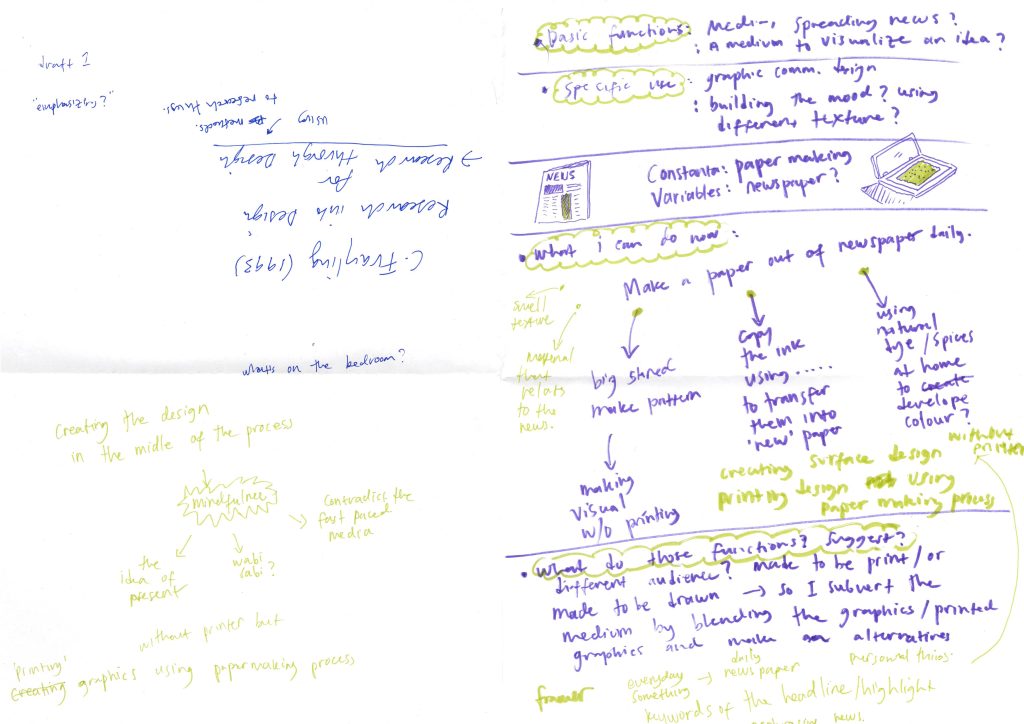 draft 1
to research this.
methods.
using
→ Research through Design
for
Research into Design
C. Frayling (1993)
whats on the bedroom?
Creating the design
in the midle of the process
mindfulnes
contradics the
fast paced
media
the
idea of
present
wabi
sabi?
without printer but
'printing'
creating graphics using papermaking process
• basic functions: Medium, spreading news?
: A medium to visualize an idea?
• specific use: graphic comm. design
: building the mood? using
different texture?
NEWS
Constanta: paper making
Variables: newspaper?
• what i can do now:
Make a paper out of newspaper daily.
smell
texture
material
that
relats
to the
news.
big shred
make pattern
making
visual
w/o printing
copy
the ink
using .....
to transfer
them into
'new' paper
using
natural
dye/spices
at home
to create
develope
colour?
without
printer
creating surface design
printing design using
paper making process
• what do those functions? suggest?
different audience? made to be print/or
made to be drawn → so I subvert the
medium by blending the graphics/printed
graphics and make an alternatives
everyday
something → daily
newspaper
personal things.
keywords of the headline/highlight
news.